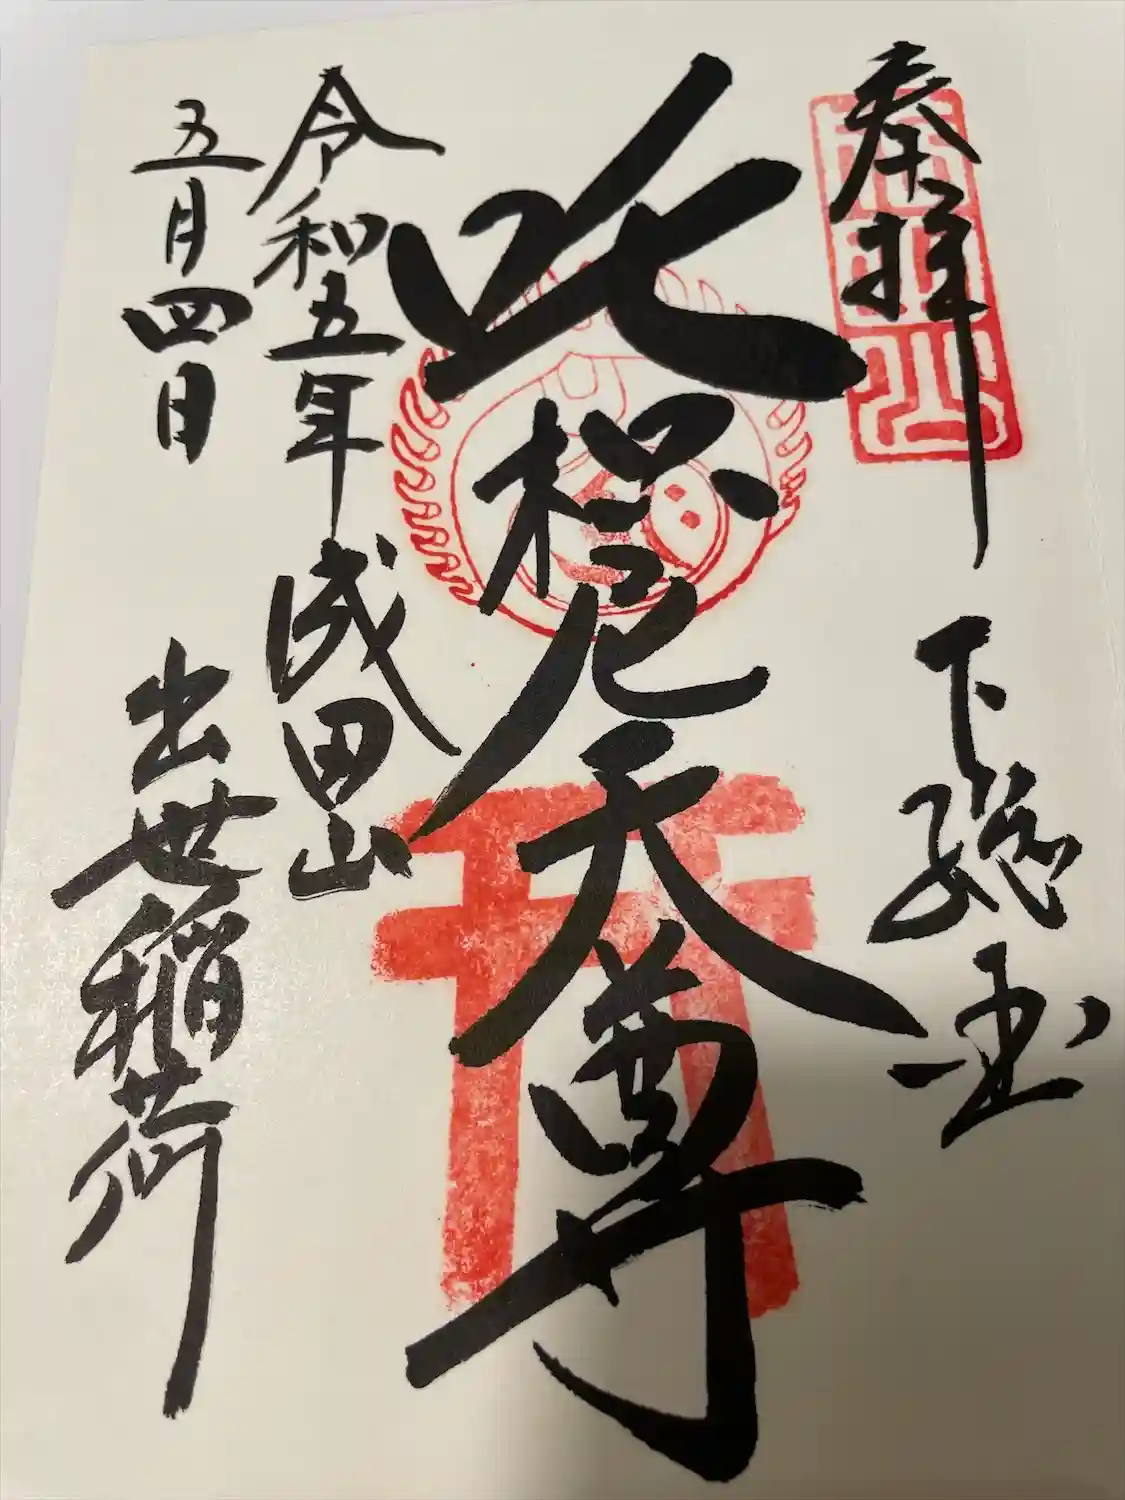 奉拝 下総国
吒枳尼天尊
令和五年 成田山
五月四日 出世稲荷